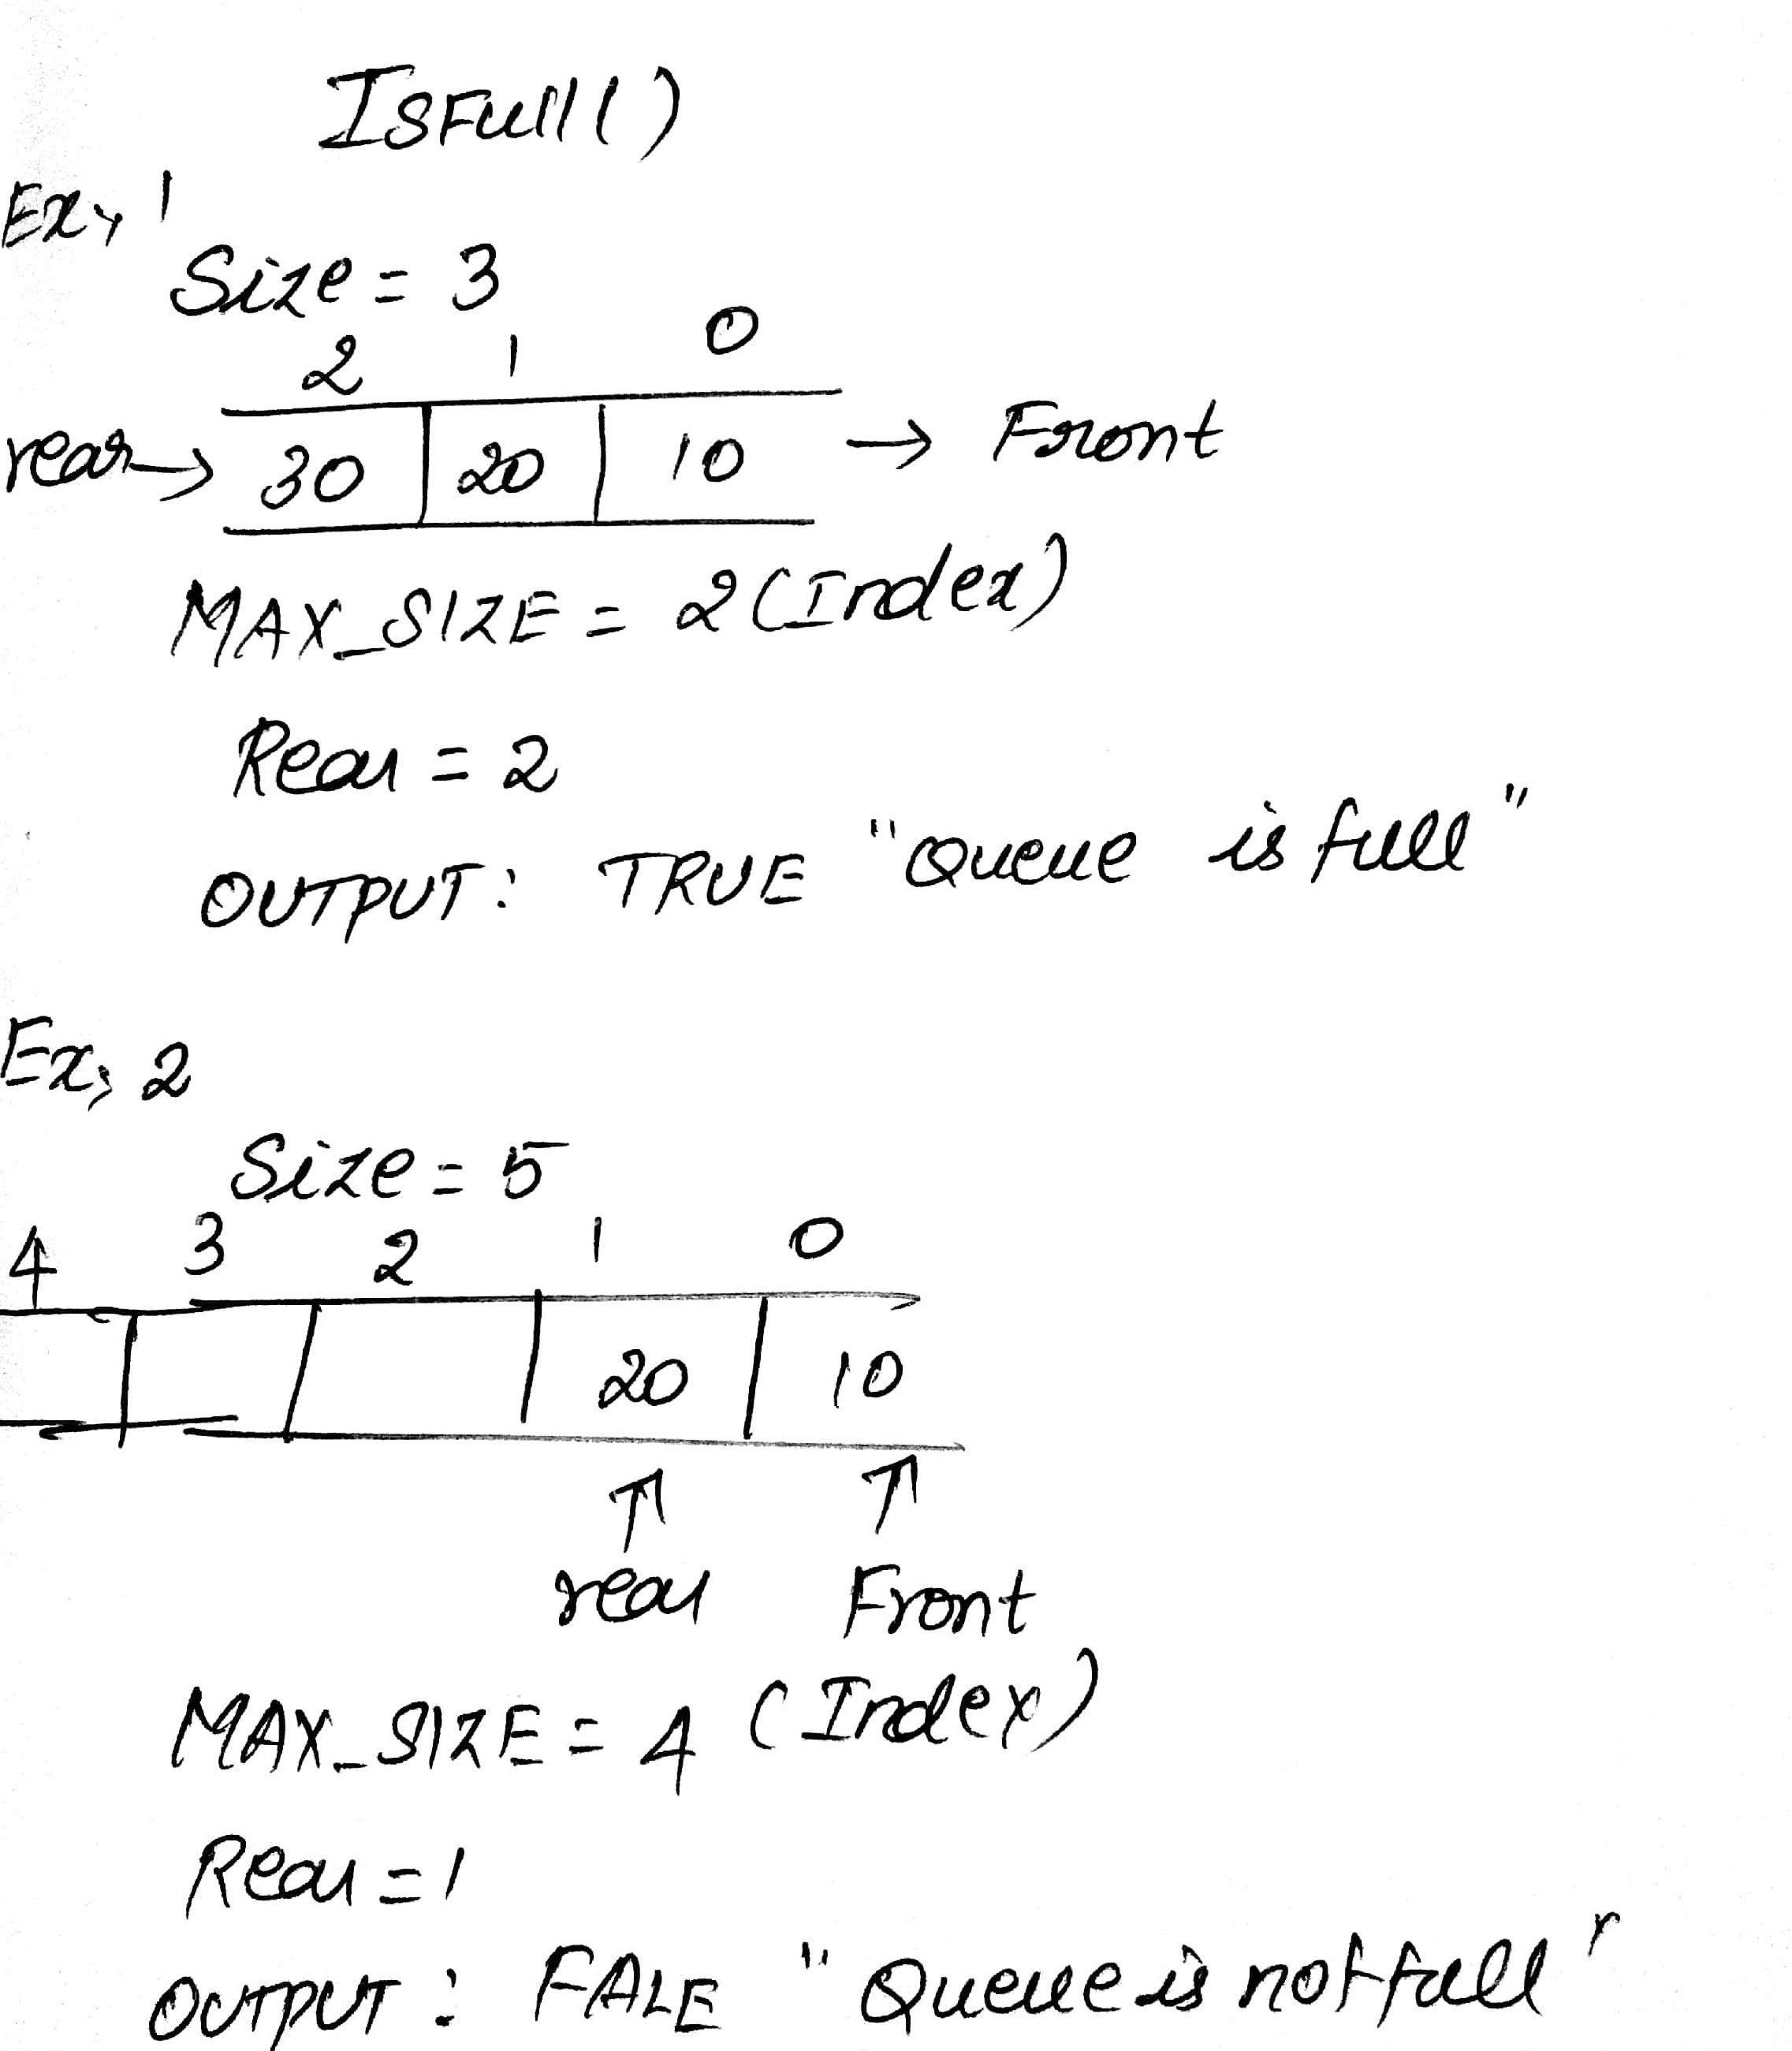 ISFull()
Ex, 1
Size = 3
2 1 0
rear → 30 20 10 → Front
MAX_SIZE = 2 (Index)
Rear = 2
OUTPUT: TRUE "Queue is full"
Ex, 2
Size = 5
4 3 2 1 0
20 10
↑ ↑
rear Front
MAX_SIZE = 4 (Index)
Rear = 1
OUTPUT : FALE "Queue is not full"